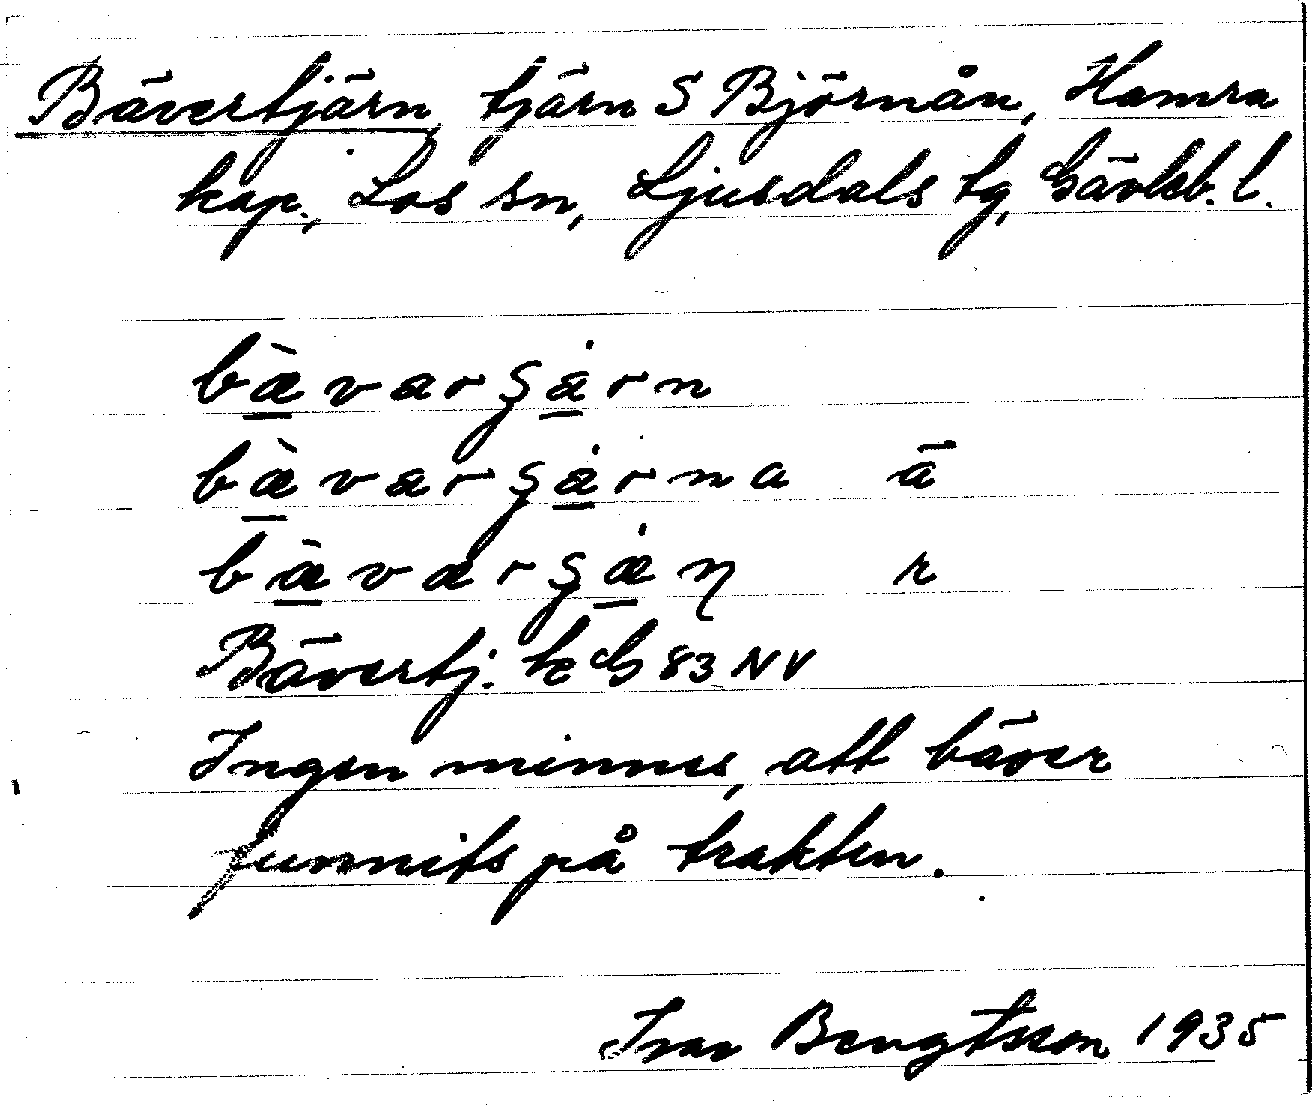 Bävertjärn, tjärn S Björnån, Hamra
kap., Los sn, Ljusdals tg, Gävleb. l.
bæ̀varʂærn
bæ̀varʂærna ā
bæ̀varʂæɳ r
Bävertj. kc G 83 NV
Ingen minnes, att bäver
funnits på trakten.
Ivar Bengtsson 1935